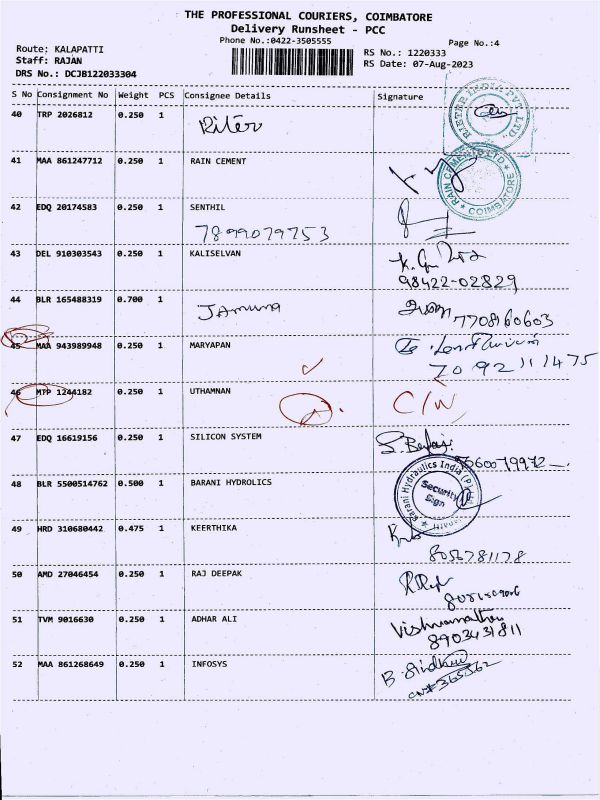 THE PROFESSIONAL COURIERS, COIMBATORE
Delivery Runsheet - PCC
Phone No.:0422-3505555
Page No.:4
Route: KALAPATTI
RS No.: 1220333
Staff: RAJAN
RS Date: 07-Aug-2023
DRS No.: DCJB122033304
S No Consignment No Weight PCS Consignee Details Signature
40 TRP 2026812 0.250 1 Riter
RIETER INDIA PVT LTD.,
41 MAA 861247712 0.250 1 RAIN CEMENT
RAIN CEMENTS LTD ★ COIMBATORE ★
42 EDQ 20174583 0.250 1 SENTHIL
7899079753
43 DEL 910303543 0.250 1 KALISELVAN
98422-02829
44 BLR 165488319 0.700 1 Jamuna
7708160603
45 MAA 943989948 0.250 1 MARYAPAN
7092111475
46 MTP 1244182 0.250 1 UTHAMNAN C/W
47 EDQ 16619156 0.250 1 SILICON SYSTEM
48 BLR 5500514762 0.500 1 BARANI HYDROLICS
Barani Hydraulics India (P)
Security
Sign
49 HRD 310680442 0.475 1 KEERTHIKA
8056781178
50 AMD 27046454 0.250 1 RAJ DEEPAK
51 TVM 9016630 0.250 1 ADHAR ALI
8903431811
52 MAA 861268649 0.250 1 INFOSYS